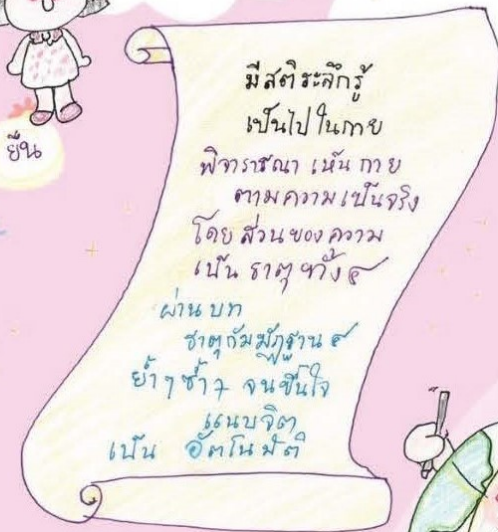 ยืน
มีสติระลึกรู้
เป็นไปในกาย
พิจาราชณา เห็น กาย
ตามความเป็นจริง
โดย ส่วนของ ความ
เป็น ธาตุ ทั้ง ๔
ผ่าน บท
ธาตุกัมมัฏฐาน ๔
ย้ำๆ ซ้ำๆ จนขึ้นใจ
แนบจิต
เป็น อัตโนมัติ